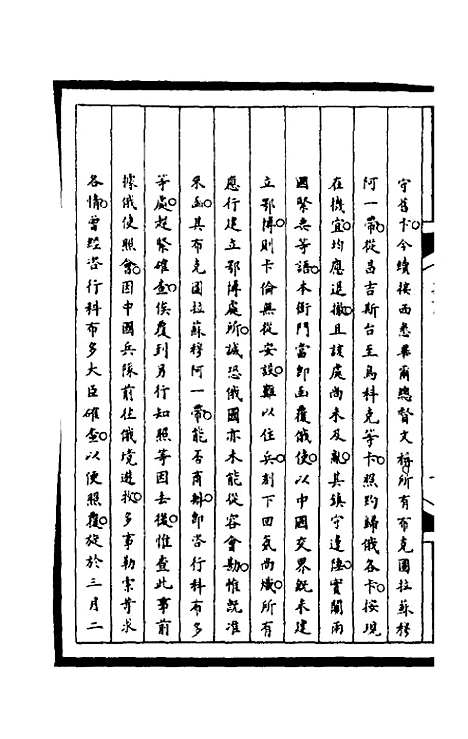 守舊卡今續接西悉畢爾總督文稱所有布克圖拉蘇穆
阿一帶從昌吉斯台至烏科克等卡照約歸俄各卡按現
在機宜均應退撤且該處尚未及亂其鎮守邊陲實關兩
國緊要等語本衙門當即函覆俄使以中國交界既未建
立鄂博則卡倫無從安設難以住兵刻下回氛尚熾所有
應行建立鄂博處所誠恐俄國亦未能從容會勘惟既准
來函其布克圖拉蘇穆阿一帶能否商辦即咨行科布多
等處趕緊確查俟覆到另行知照等因去後惟查此事前
據俄使照會因中國兵隊前往俄境遊牧多事勒索等求
各情曾經咨行科布多大臣確查以便照覆旋於三月二